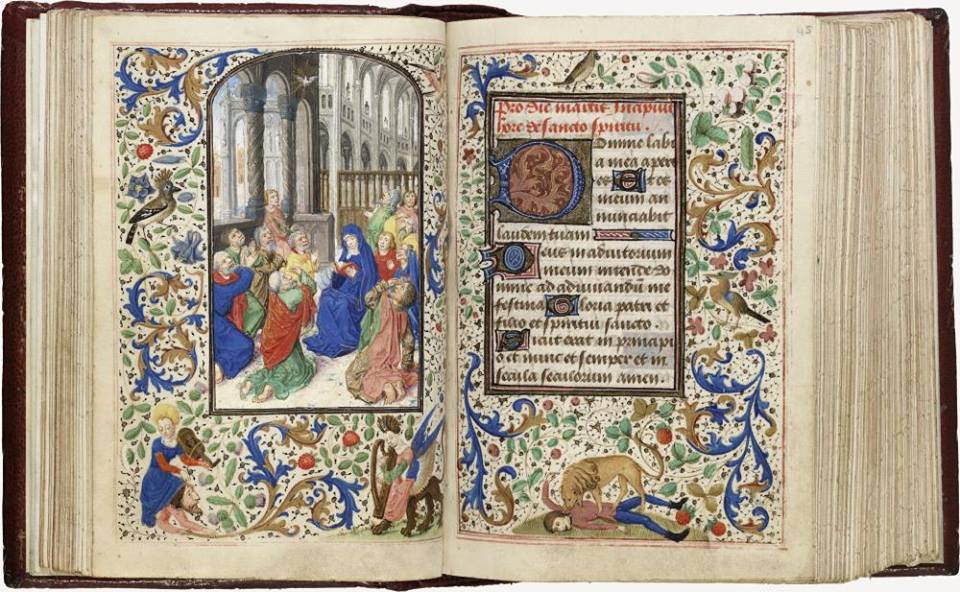 45
Pro die martit Incipiut
hore de sancto spiritu .
Domine labi
a mea aperi
es Et os
meum an
nunciabit
laudem tuam
Deus in adiutorium
meum intende Do
mine ad adiuvandū me
festina Gloria patri et
filio et spiritui sancto
Sicut erat in principi
o et nunc et semper et in
secula seculorum amen .